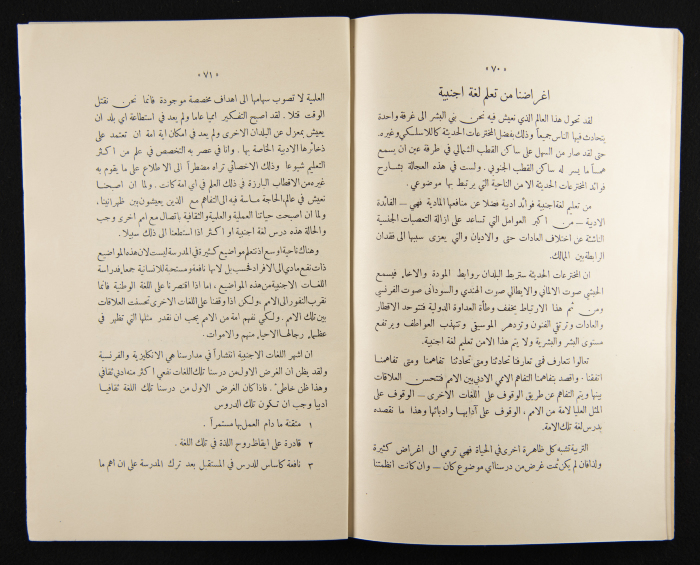 « ٧٠ »
اغراضنا من تعلم لغة اجنبية
لقد تحول هذا العالم الذي نعيش فيه نحن بني البشر الى غرفة واحدة
يتحادث فيها الناس جميعاً وذلك بفضل المخترعات الحديثة كاللاسلكي وغيره.
حتى لقد صار من السهل على ساكن القطب الشمالي في طرفة عين ان يسمع
همساً ما يسر له ساكن القطب الجنوبي. ولست في هذه العجالة بشارح
فوائد المخترعات الحديثة الا من الناحية التي يرتبط بها موضوعي.
من تعليم لغة اجنبية فوائد ادبية فضلا عن منافعها المادية فهي — الفائدة
الادبية — من اكبر العوامل التي تساعد على ازالة التعصبات الجنسية
الناشئة عن اختلاف العادات حتى والاديان والتي يعزى سببها الى فقدان
الرابطة بين المالك.
ان المخترعات الحديثة ستربط البلدان بروابط المودة والاخاء فيسمع
الحبشي صوت الالماني والايطالي صوت الهندي والسوداني صوت الفرنسي
ومن ثم هذا الارتباط يخفف وطأة العداوة الدولية فتتوحد الاقطار
والعادات وترتقي الفنون وتزدهر الموسيقى وتتهذب العواطف ويرتفع
مستوى البشر والبشرية ولا يتم هذا الامن تعليم لغة اجنبية.
تعالوا نتعارف فمتى تعارفنا تحادثنا ومتى تحادثنا تفاهمنا ومتى تفاهمنا
اتفقنا. واقصد بتفاهمنا التفاهم الامي الادبي بين الامم فتتحسن العلاقات
بينها ويتم التفاهم عن طريق الوقوف على اللغات الاخرى — الوقوف على
المثل العليا لامة من الامم، الوقوف على آدابها وادبائها وهذا ما نقصده
بدرس لغة تلك الامة.
التربة تشبه كل ظاهرة اخرى في الحياة فهي ترمي الى اغراض كثيرة
ولذا فان لم يكن ثمت غرض من درسنا اي موضوع كان — وان كانت انظمتنا
« ٧١ »
العلمية لا تصوب سهامها الى اهداف مخصصة موجودة فانما نحن نقتل
الوقت قتلا. لقد اصبح التفكير اميا عاما ولم يعد في استطاعة اي بلد ان
يعيش بمعزل عن البلدان الاخرى ولم يعد في امكان اية امة ان تعتمد على
ذخائرها الادبية الخاصة بها. وانا في عصر به التخصص في علم من اكثر
التعليم شيوعا وذلك الاخصائي تراه مضطراً الى الاطلاع على ما يقوم به
غيره من الاقطاب البارزة في ذلك العلم في اي امة كانت. ولما ان اصبحنا
نعيش في عالم، الحاجة ماسة فيه الى التفاهم مع الذين يعيشون بين ظهرانينا،
ولما ان اصبحت حياتنا العملية والعلمية والثقافية باتصال مع امم اخرى وجب
والحالة هذه درس لغة اجنبية او اكثر اذا استطعنا الى ذلك سبيلا.
وهناك ناحية اوسع اذ نتعلم مواضيع كثيرة في المدرسة ليست لان هذه المواضيع
ذات نفع مادي الى الافراد فحسب بل لانها نافعة ومستحبة للانسانية جمعاء فدراسة
اللغات الاجنبية من هذه المواضيع، اما اذا اقتصرنا على اللغة الوطنية فانما
نقرب النفور الى الامم، ولكن اذا وقفنا على اللغات الاخرى تحسنت العلاقات
بين تلك الامم. ولكي نفهم امة من الامم يجب ان نقدر مثلها التي تظهر في
عظمائها، رجالها الاحياء منهم والاموات.
ان اشهر اللغات الاجنبية انتشاراً في مدارسنا هي الانكليزية والفرنسية
ولقد يظن ان الغرض الاول من درسنا تلك اللغات نفعي اكثر منه ادبي ثقافي
وهذا ظن خاطئ. فاذا كان الغرض الاول من درسنا تلك اللغة ثقافيا
ادبيا وجب ان تكون تلك الدروس
١ مثقفة ما دام العمل بها مستمراً.
٢ قادرة على ايقاظ روح اللذة في تلك اللغة.
٣ نافعة كاساس للدرس في المستقبل بعد ترك المدرسة على ان اهم ما